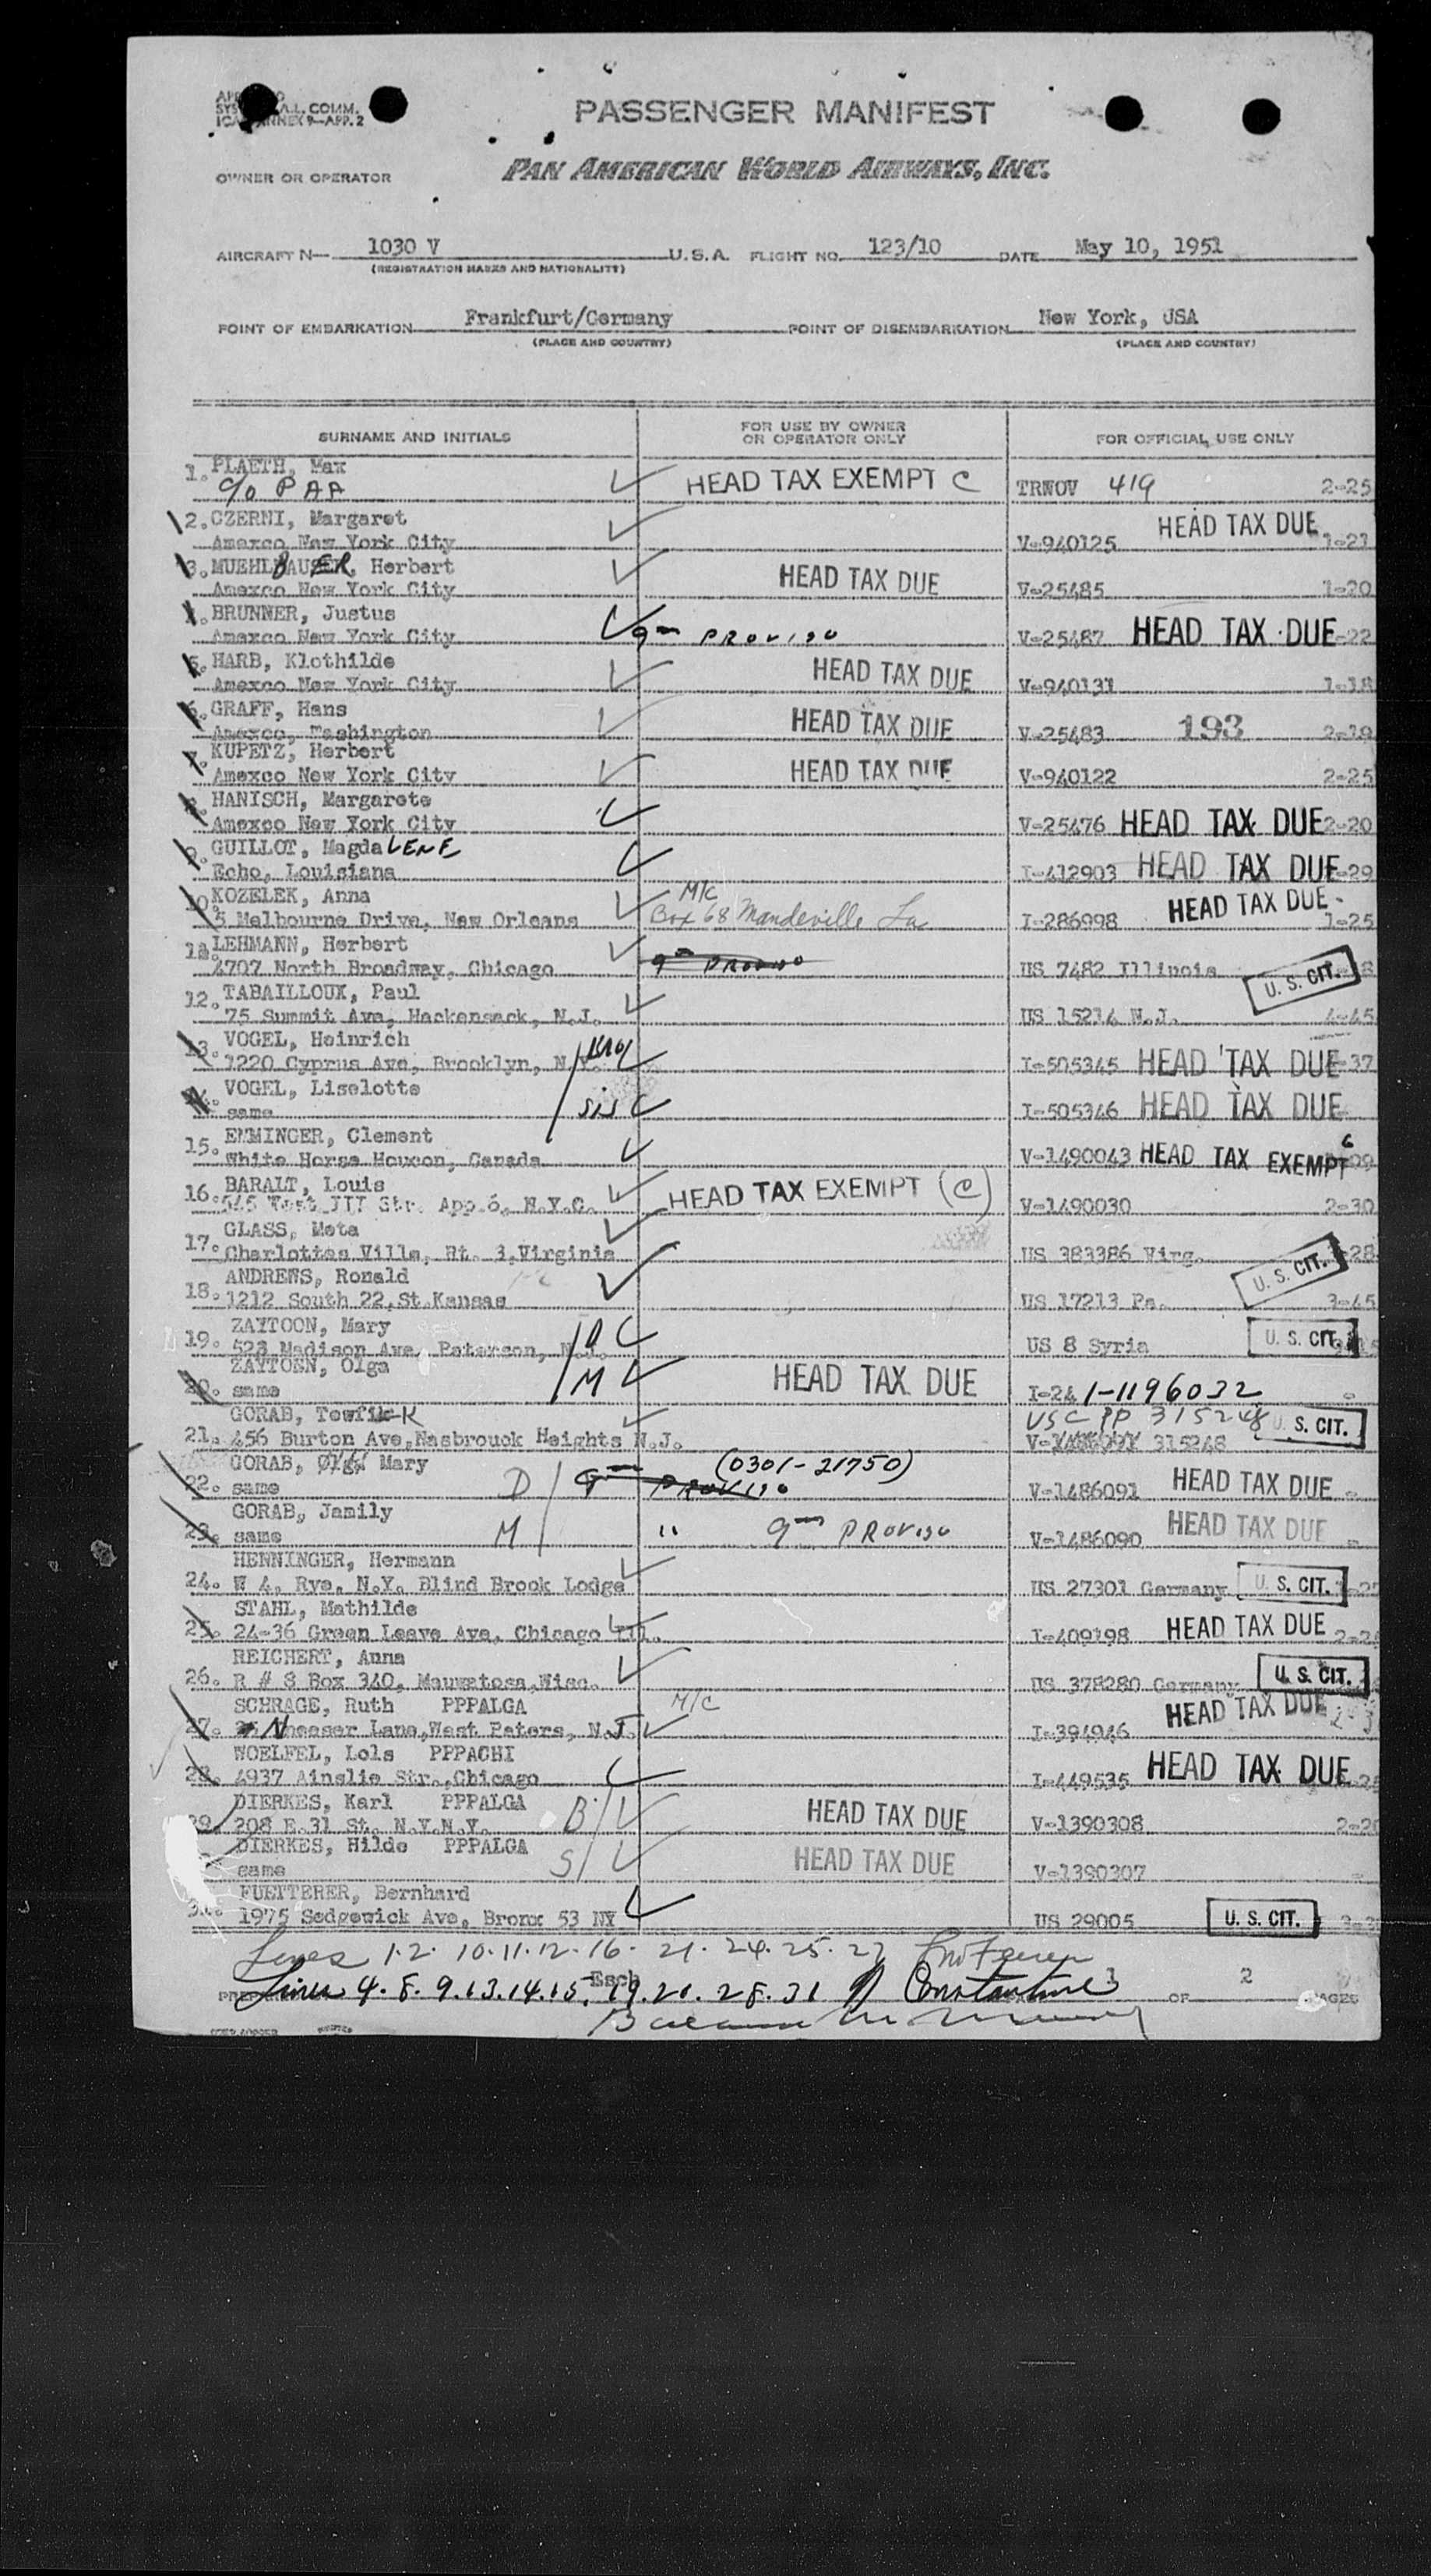 PASSENGER MANIFEST
PAN AMERICAN WORLD AIRWAYS, INC.
OWNER OR OPERATOR
AIRCRAFT N— 1030 V U.S.A. FLIGHT NO. 123/10 DATE May 10, 1951
(REGISTRATION MARKS AND NATIONALITY)
POINT OF EMBARKATION Frankfurt/Germany POINT OF DISEMBARKATION New York, USA
(PLACE AND COUNTRY) (PLACE AND COUNTRY)
SURNAME AND INITIALS FOR USE BY OWNER OR OPERATOR ONLY FOR OFFICIAL USE ONLY
1. PLAETH, Max
c/o PAA HEAD TAX EXEMPT C TRWOV 419 2-25
2. CZERNI, Margaret
Amexco New York City V-940125 HEAD TAX DUE 1-21
3. MUEHLBAUER, Herbert
Amexco New York City HEAD TAX DUE V-25485 1-20
BRUNNER, Justus
Amexco New York City 9th PROVISO V-25487 HEAD TAX DUE -22
HARB, Klothilde
Amexco New York City HEAD TAX DUE V-940131 1-18
GRAFF, Hans
Amexco, Washington HEAD TAX DUE V-25483 193 2-19
7. KUPETZ, Herbert
Amexco New York City HEAD TAX DUE V-940122 2-25
HANISCH, Margarete
Amexco New York City V-25476 HEAD TAX DUE 2-20
9. GUILLOT, MagdaLENE
Echo, Louisiana I-412903 HEAD TAX DUE -29
10. KOZELEK, Anna M/C
5 Melbourne Drive, New Orleans Box 68 Mandeville La I-286998 HEAD TAX DUE 1-25
LEHMANN, Herbert
4707 North Broadway, Chicago 9th PROVISO US 7482 Illinois U. S. CIT.
12. TABAILLOUX, Paul
75 Summit Ave, Hackensack, N.J. US 15214 N.J. 4-45
13. VOGEL, Heinrich
1220 Cyprus Ave, Brooklyn, N.Y. I-505345 HEAD TAX DUE -37
VOGEL, Liselotte
same sis I-505346 HEAD TAX DUE
15. EMMINGER, Clement
White Horse Houcon, Canada V-1490043 HEAD TAX EXEMPT
16. BARALT, Louis
545 West 111 Str. App.6, N.Y.C. HEAD TAX EXEMPT (C) V-1490030 2-30
17. GLASS, Meta
Charlottes Ville, Rt. 3, Virginia US 383386 Virg. -28
18. ANDREWS, Ronald U. S. CIT.
1212 South 22,St.Kansas US 17213 Pa. 3-45
19. ZAYTOON, Mary
523 Madison Ave, Paterson, N.J. D US 8 Syria U. S. CIT.
20. ZAYTOEN, Olga
same M HEAD TAX DUE I-24 1-1196032
21. GORAB, Towfik K USC PP 315248 U. S. CIT.
456 Burton Ave,Hasbrouck Heights N.J. 315248
22. GORAB, Mary (0301-21750)
same D 9th PROVISO V-1486091 HEAD TAX DUE
23. GORAB, Jamily
same M " 9th PROVISO V-1486090 HEAD TAX DUE
24. HENNINGER, Hermann
W 4, Rye, N.Y. Blind Brook Lodge US 27301 Germany U. S. CIT.
25. STAHL, Mathilde
24-36 Green Leave Ave, Chicago Ill. I-409198 HEAD TAX DUE
26. REICHERT, Anna
R # 8 Box 340, Mauwatosa,Wisc. US 378280 Germany U. S. CIT.
27. SCHRAGE, Ruth PPPALGA M/C
Lane,West Paters, N.J. I-394946 HEAD TAX DUE
28. WOELFEL, Lols PPPACHI
4937 Ainslie Str.,Chicago I-449535 HEAD TAX DUE
29. DIERKES, Karl PPPALGA
208 E.31 St. N.Y.N.Y. B HEAD TAX DUE V-1390308
DIERKES, Hilde PPPALGA
same S HEAD TAX DUE V-1390307
FUETTERER, Bernhard
1975 Sedgewick Ave, Bronx 53 NY US 29005 U. S. CIT.
Lines 1-2. 10.11.12.16. 21. 24.25.27
Lines 4.8.9.13.14.15. 19.20.28.31 Constantine
Esch 1 OF 2 PAGES